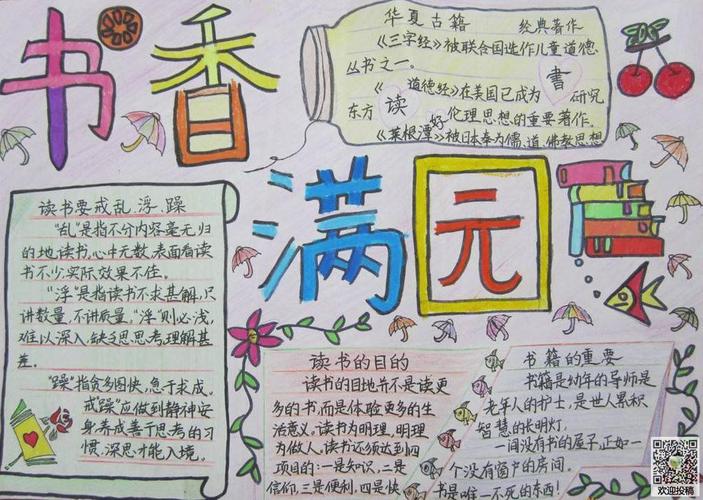 书香满园
华夏古籍 经典著作
《三字经》被联合国选作儿童道德
丛书之一。
《道德经》在美国已成为研究
东方伦理思想的重要著作。
《菜根谭》被日本奉为儒、道、佛教思想
读好書
读书要戒乱,浮,躁
"乱"是指不分内容毫无归
的地读书,心中无数,表面看读
书不少,实际效果不佳。
"浮"是指读书不求甚解,只
讲数量,不讲质量,"浮"则必浅,
难以深入,缺乏思思考,理解甚
差。
"躁"指贪多图快,急于求成。
戒躁"应做到静神安
身养成善于思考的习
惯,深思才能入境。
读书的目的
读书的目地并不是读更
多的书,而是体验更多的生
活意义,读书为明理,明理
为做人,读书还须达到四
项目的:一是知识,二是
信仰,三是便利,四是快
书籍的重要
书籍是幼年的导师是
老年人的护士,是世人累积
智慧的长明灯。
一间没有书的屋子,正如一
个没有窗户的房间。
书是唯一不死的东西!
欢迎投稿